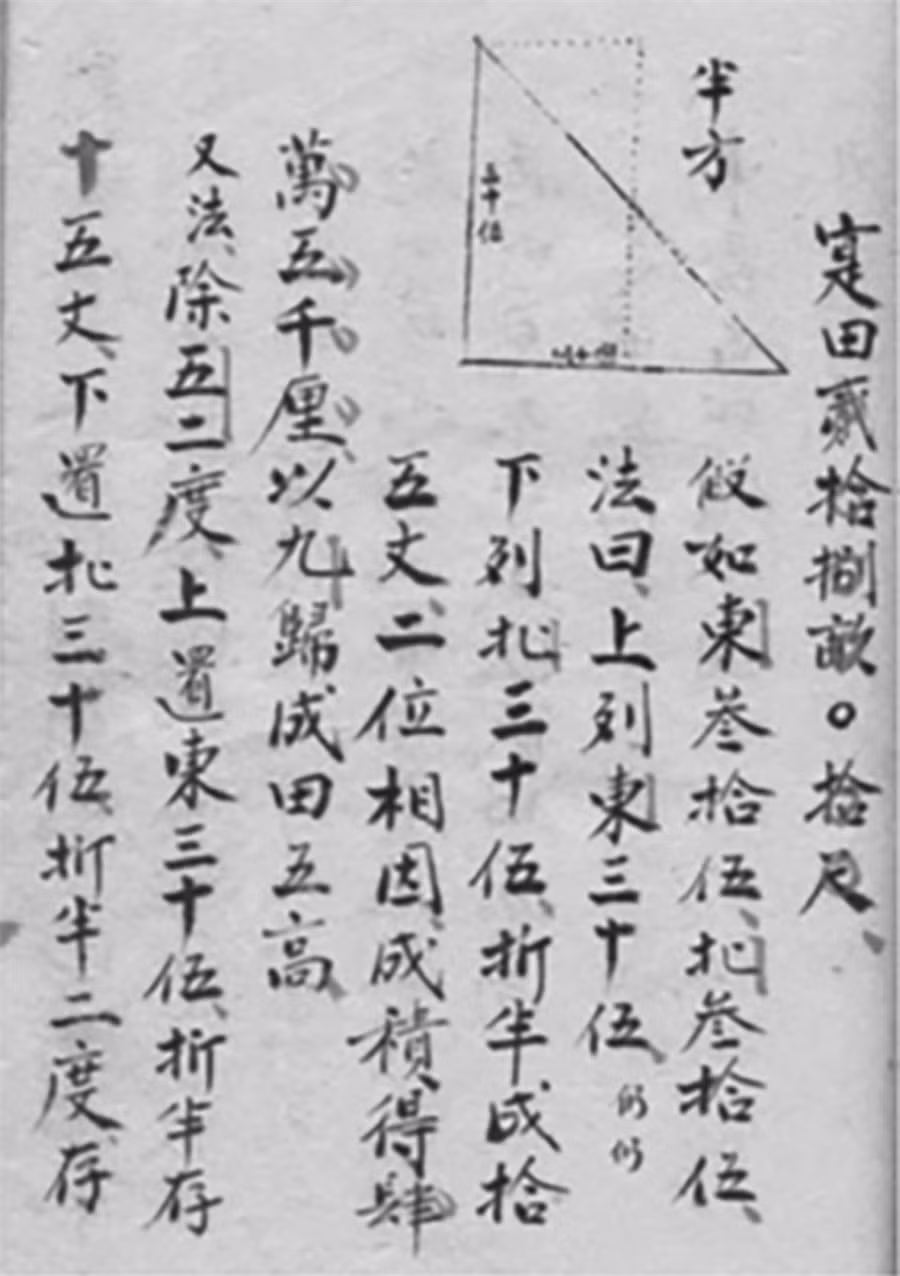 寔田貳拾捌畝〇拾尺
半方
三十伍
假如東叄拾伍北叄拾伍
法曰上列東三十伍仍仍
下列北三十伍折半成拾
五丈二位相因成積得肆
萬五千厘以九歸成田五高
又法除五二度上置東三十伍折半存
十五丈下置北三十伍折半二度存